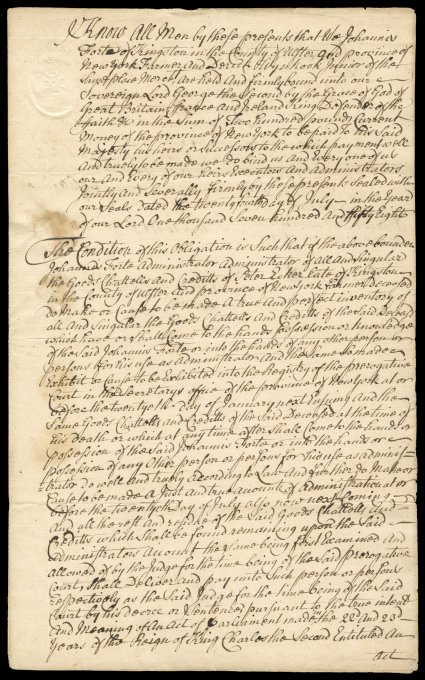 Know All Men by these presents that We Johannis
Forte of Kingston in the County of Ulster And province of
New York Farmer And Derick Wynkook Junior of the
Same place Mercr are held And firmly bound unto our
Sovereign Lord George the Second by the Grace of God of
Great Brittain France and Ireland King Defender of the
faith &c in the Sum of Two hundred pounds Current
Money of the province of New York to be paid to his Said
Majesty his heirs or Successors to the which payment well
And truely to be made we do bind us and Every one of us
our And Every of our heirs Executors and Administrators
Jointly and Severally firmly by these presents Sealed with
our Seals Dated the twentyeth Day of July in the Year
of our Lord One thousand Seven hundred And fifty Eight
The Condition of this Obligation is Such that if the above bounden
Johannis Forte Administrator Administrator of All and Singular
the Goods Chattells and Creditts of Peter Ecker Late of Kingston
in the County of Ulster And province of New York farmer Deceased
do Make or Cause to be made A true And perfect inventory of
all And Singular the Goods Chattells And Credits of the Said Deceasd
which have or shall Come to the hands possession or knowledge
of the Said Johannis Forte or into the hands of any other person or
persons for his use as Administrator And the Same so made
exhibit or Cause to be Exhibited into the Registry of the prerogative
Court in the Secretarys office of the province of New York at or
before the twentyeth Day of January next Ensuing And the
Same Goods Chattells and Credits of the Said Deceased at the time of
his Death or which at any time after Shall Come to the hands or
possession of the Said Johannis Forte or into the hands or
possession of any Other person or persons for his use as adminis=
trator Do well And truely According to Law And further do Make or
Cause to be made A Just And true Account of Administration at or
before the twentyeth Day of July also now next Coming
And all the rest And residue of the Said Goods Chattells And
Credits which Shall be found remaining upon the Said
Administrators Account the Same being first Examined And
allowed of by the Judge for the time being of the Said Prerogative
Court, Shall Deliver and pay unto Such person or persons
respectively as the Said Judge for the time being of the Said
Court by his Decree or Sentence pursuant to the true intent
And Meaning of An Act of Parliment made in the 22 and 23d
Years of the Reign of King Charles the Second Entituled An
act